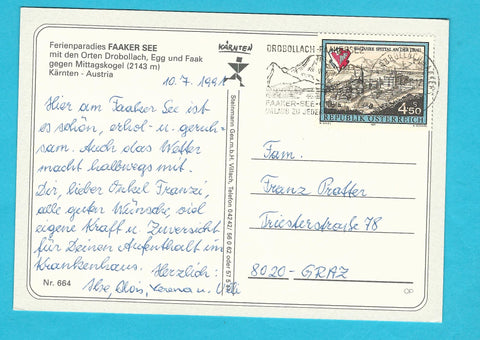 Ferienparadies FAAKER SEE
mit den Orten Drobollach, Egg und Faak
gegen Mittagskogel (2143 m)
Kärnten - Austria
10.7.1991
Hier am Faaker See ist
es schön, erhol- u. geruh-
sam. Auch das Wetter
macht halbwegs mit.
Dir, lieber Onkel Franzi,
alle guten Wünsche, viel
eigene Kraft u. Zuversicht
für Deinen Aufenthalt im
Krankenhaus. Herzlich:
Ilse, Alois, Verena u.
Nr. 664
KÄRNTEN
Steinmann Ges.m.b.H. Villach, Telefon 04242/
DROBOLLACH
FAAKER-SEE
SPITAL AN DER
4.50
REPUBLIK ÖSTERREICH
Fam.
Franz Pratter
Triesterstraße 78
8020 - GRAZ